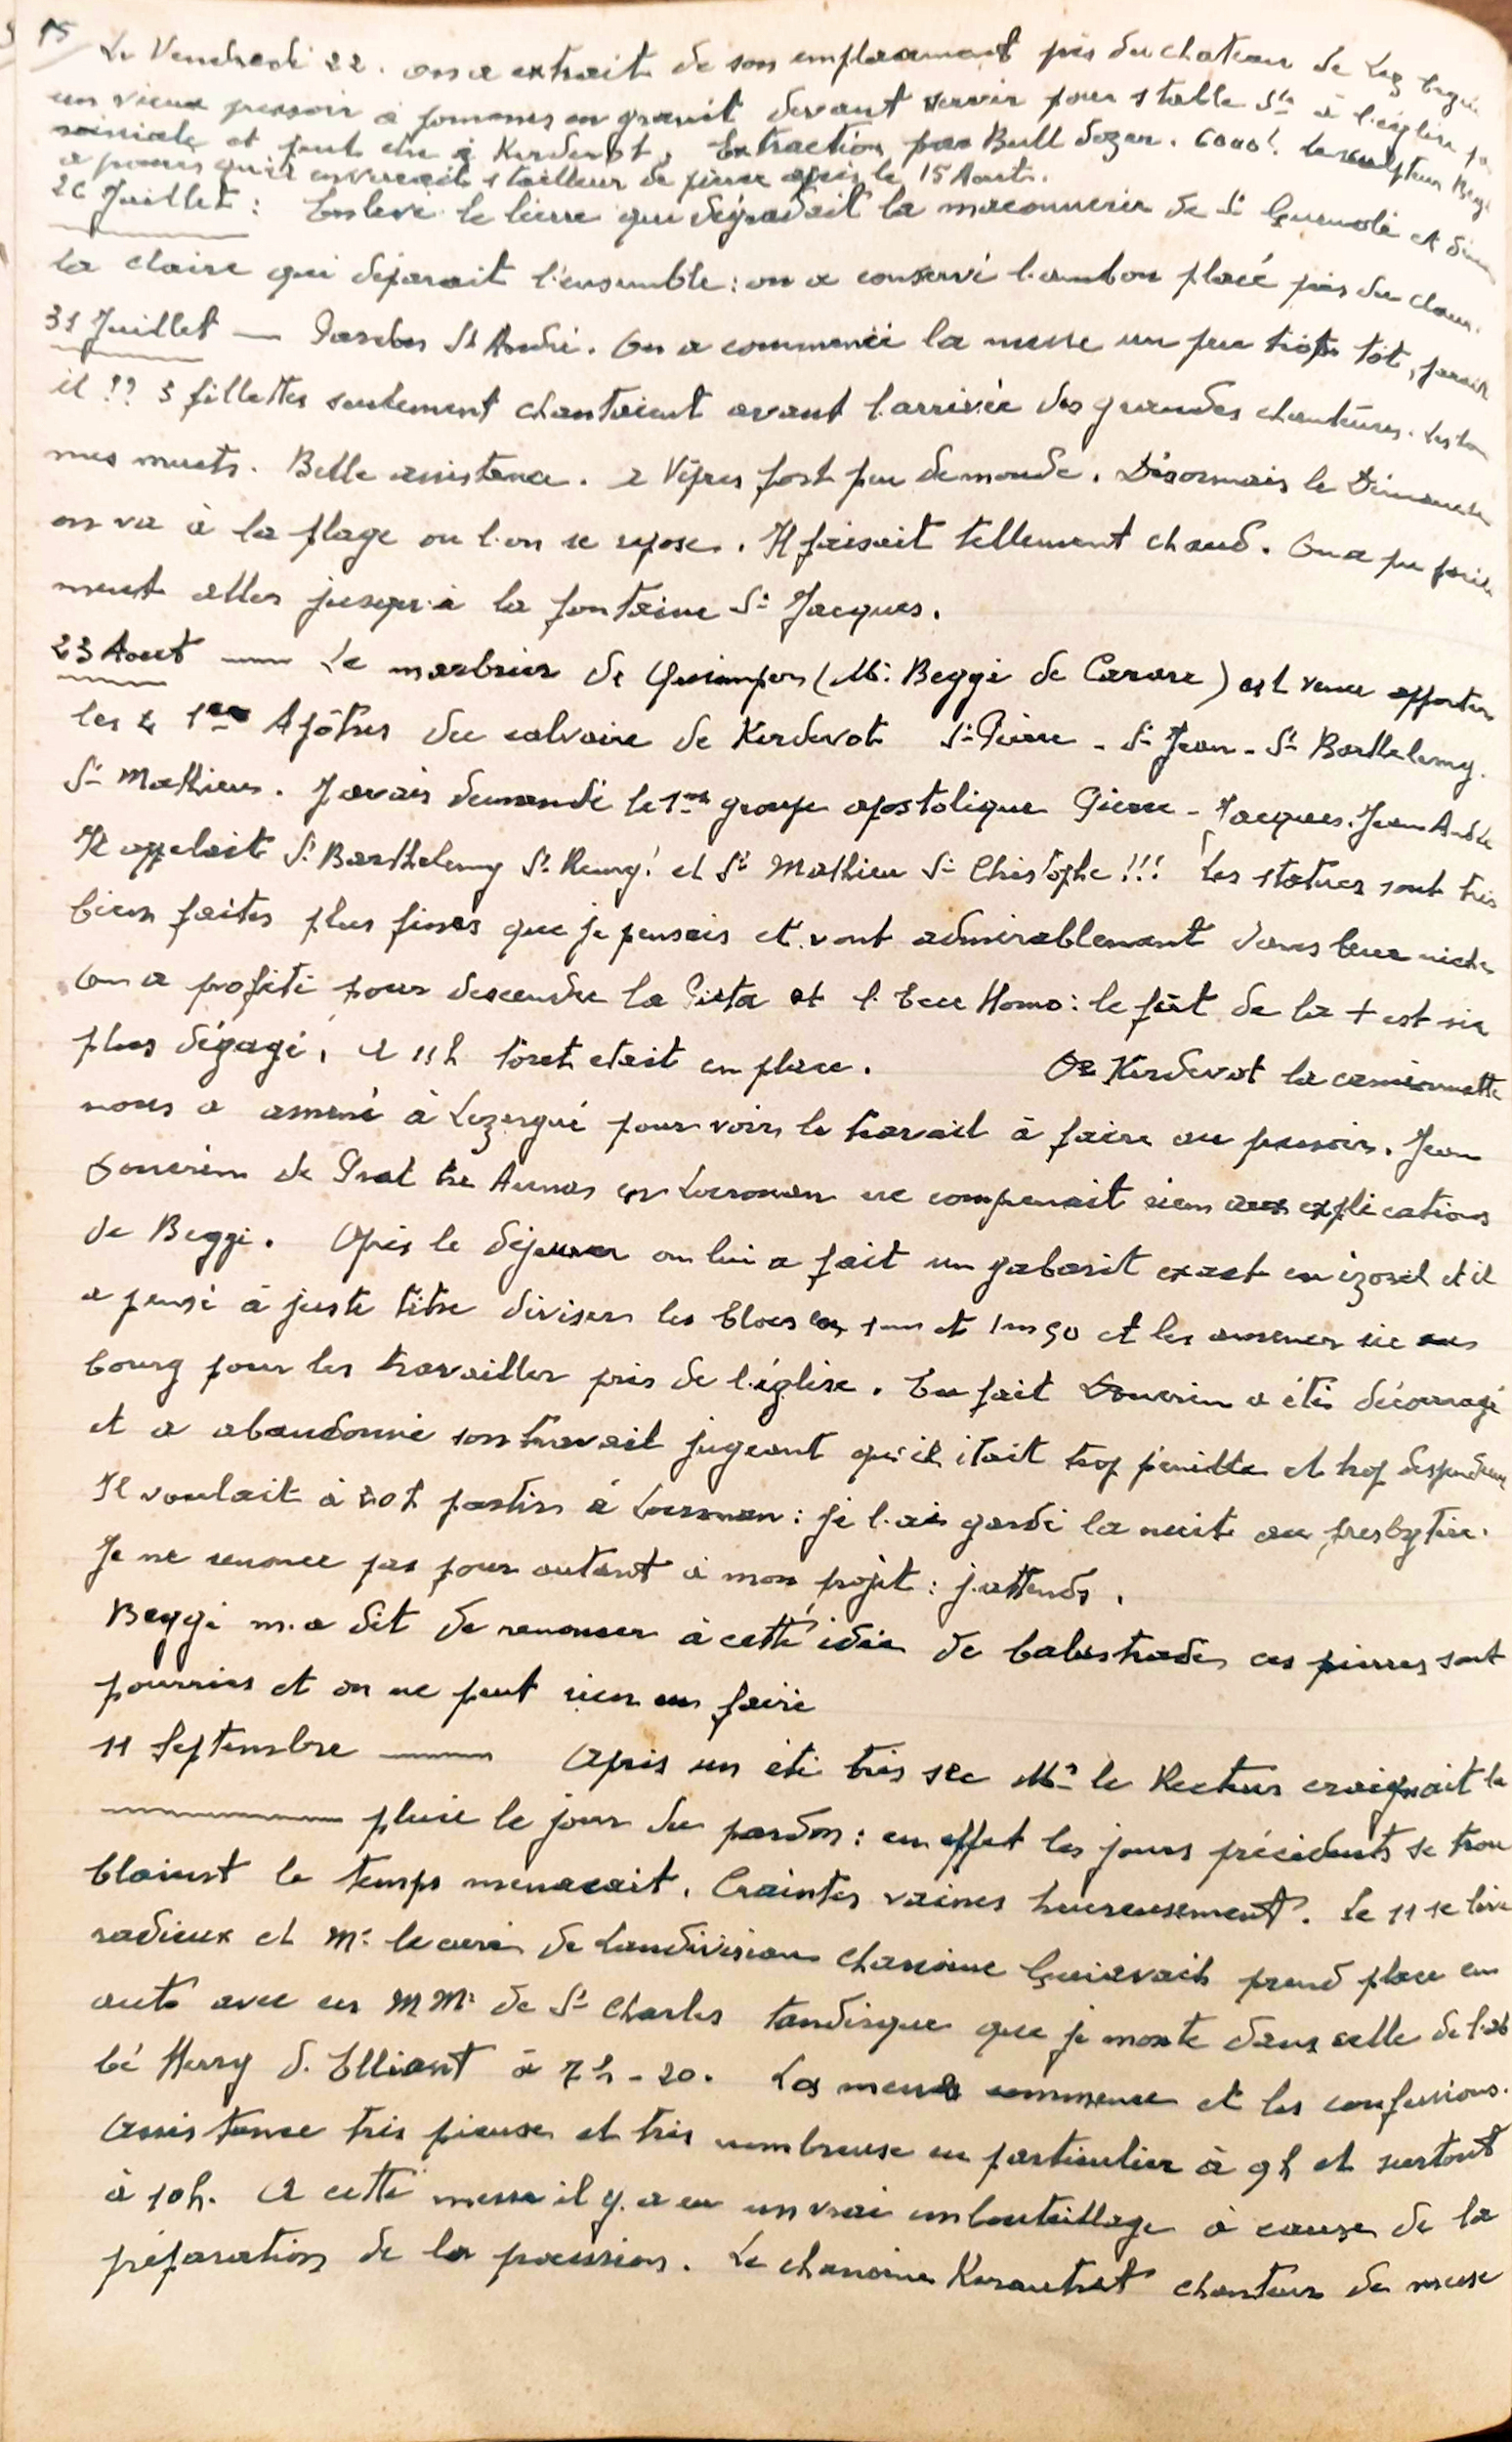 15 Le Vendredi 22. on a extrait de son emplacement près du chateau de Lez ergué
un vieux pressoir à pommes en granit devant servir pour 1 stalle Ste à l'église pa
roissiale et peut être à Kerdevot, Extraction par Bull dozer. 6000!. Le sculpteur Beggi
a promis qu'il enverrait 1 tailleur de pierre après le 15 Aout.
26 Juillet : Enlevé le lierre qui dégradait la maconnerie de St Guenolé et
la claire qui déparait l'ensemble : on a conservé l'ambon placé près du
31 Juillet — Pardon St André. On a commencé la messe un peu trop tôt, parait
il !? 3 fillettes seulement chantaient avant l'arrivée des grandes chanteuses. Les hom
mes muets. Belle assistance. a Vêpres fort peu de monde. Désormais le Dimanche
on va à la plage ou l'on se repose. Il faisait tellement chaud. On a pu
ment aller jusqu'à la fontaine St Jacques.
23 Aout — Le marbrier de Quimper (Mr Beggi de Carare) est venu apporter
les 4 1ers Apôtres du calvaire de Kerdevot St Pierre - St Jean - St Barthelemy.
St Mathieu. J'avais demandé le 1er groupe apostolique Pierre - Jacques. Jean André
Il appelait St Barthelemy St Remy! et St Mathieu St Christophe !!! Les statues sont très
bien faites plus fines que je pensais et vont admirablement dans leur niche
On a profité pour descendre la Pieta et l'Ecce Homo : le fût de la + est
plus dégagé, à 11h tout etait en place. De Kerdevot la camionnette
nous a amené à Lezergué pour voir le travail à faire au pressoir. Jean
Douerin de Prat tre Aunos en Locronan ne comprenait rien aux explications
de Beggi. Après le déjeuner on lui a fait un gabarit exact en izorel et il
a pensé à juste titre diviser les blocs en 1m et 1m50 et les amener ici au
bourg pour les travailler près de l'église. En fait Douerin a été découragé
et a abandonné son travail jugeant qu'il était trop penible et trop dispendieux
Il voulait à 20h partir à Locronan : je l'ai gardé la nuit au presbytère.
Je ne renonce pas pour autant à mon projet : j'attends.
Beggi m'a dit de renoncer à cette idée de balustrades ces pierres sont
pourries et on ne peut rien en faire
11 Septembre — Après un été très sec Mr le Recteur craignait la
pluie le jour du pardon : en effet les jours précédents se trou
blaient le temps menacait. Craintes vaines heureusement. Le 11 se lève
radieux et Mr le curé de Landivisiau chanoine Guiavarch prend place en
auto avec es M Mr de St Charles tandisque que je monte dans celle de l'ab
bé Henry d'Elliant à 7h-20. Les messes commence et les confessions.
Assistance très pieuse et très nombreuse en particulier à 9h et surtout
à 10h. A cette messe il y a eu un vrai embouteillage à cause de la
préparation de la procession. Le chanoine Kerautret chanteur de messe